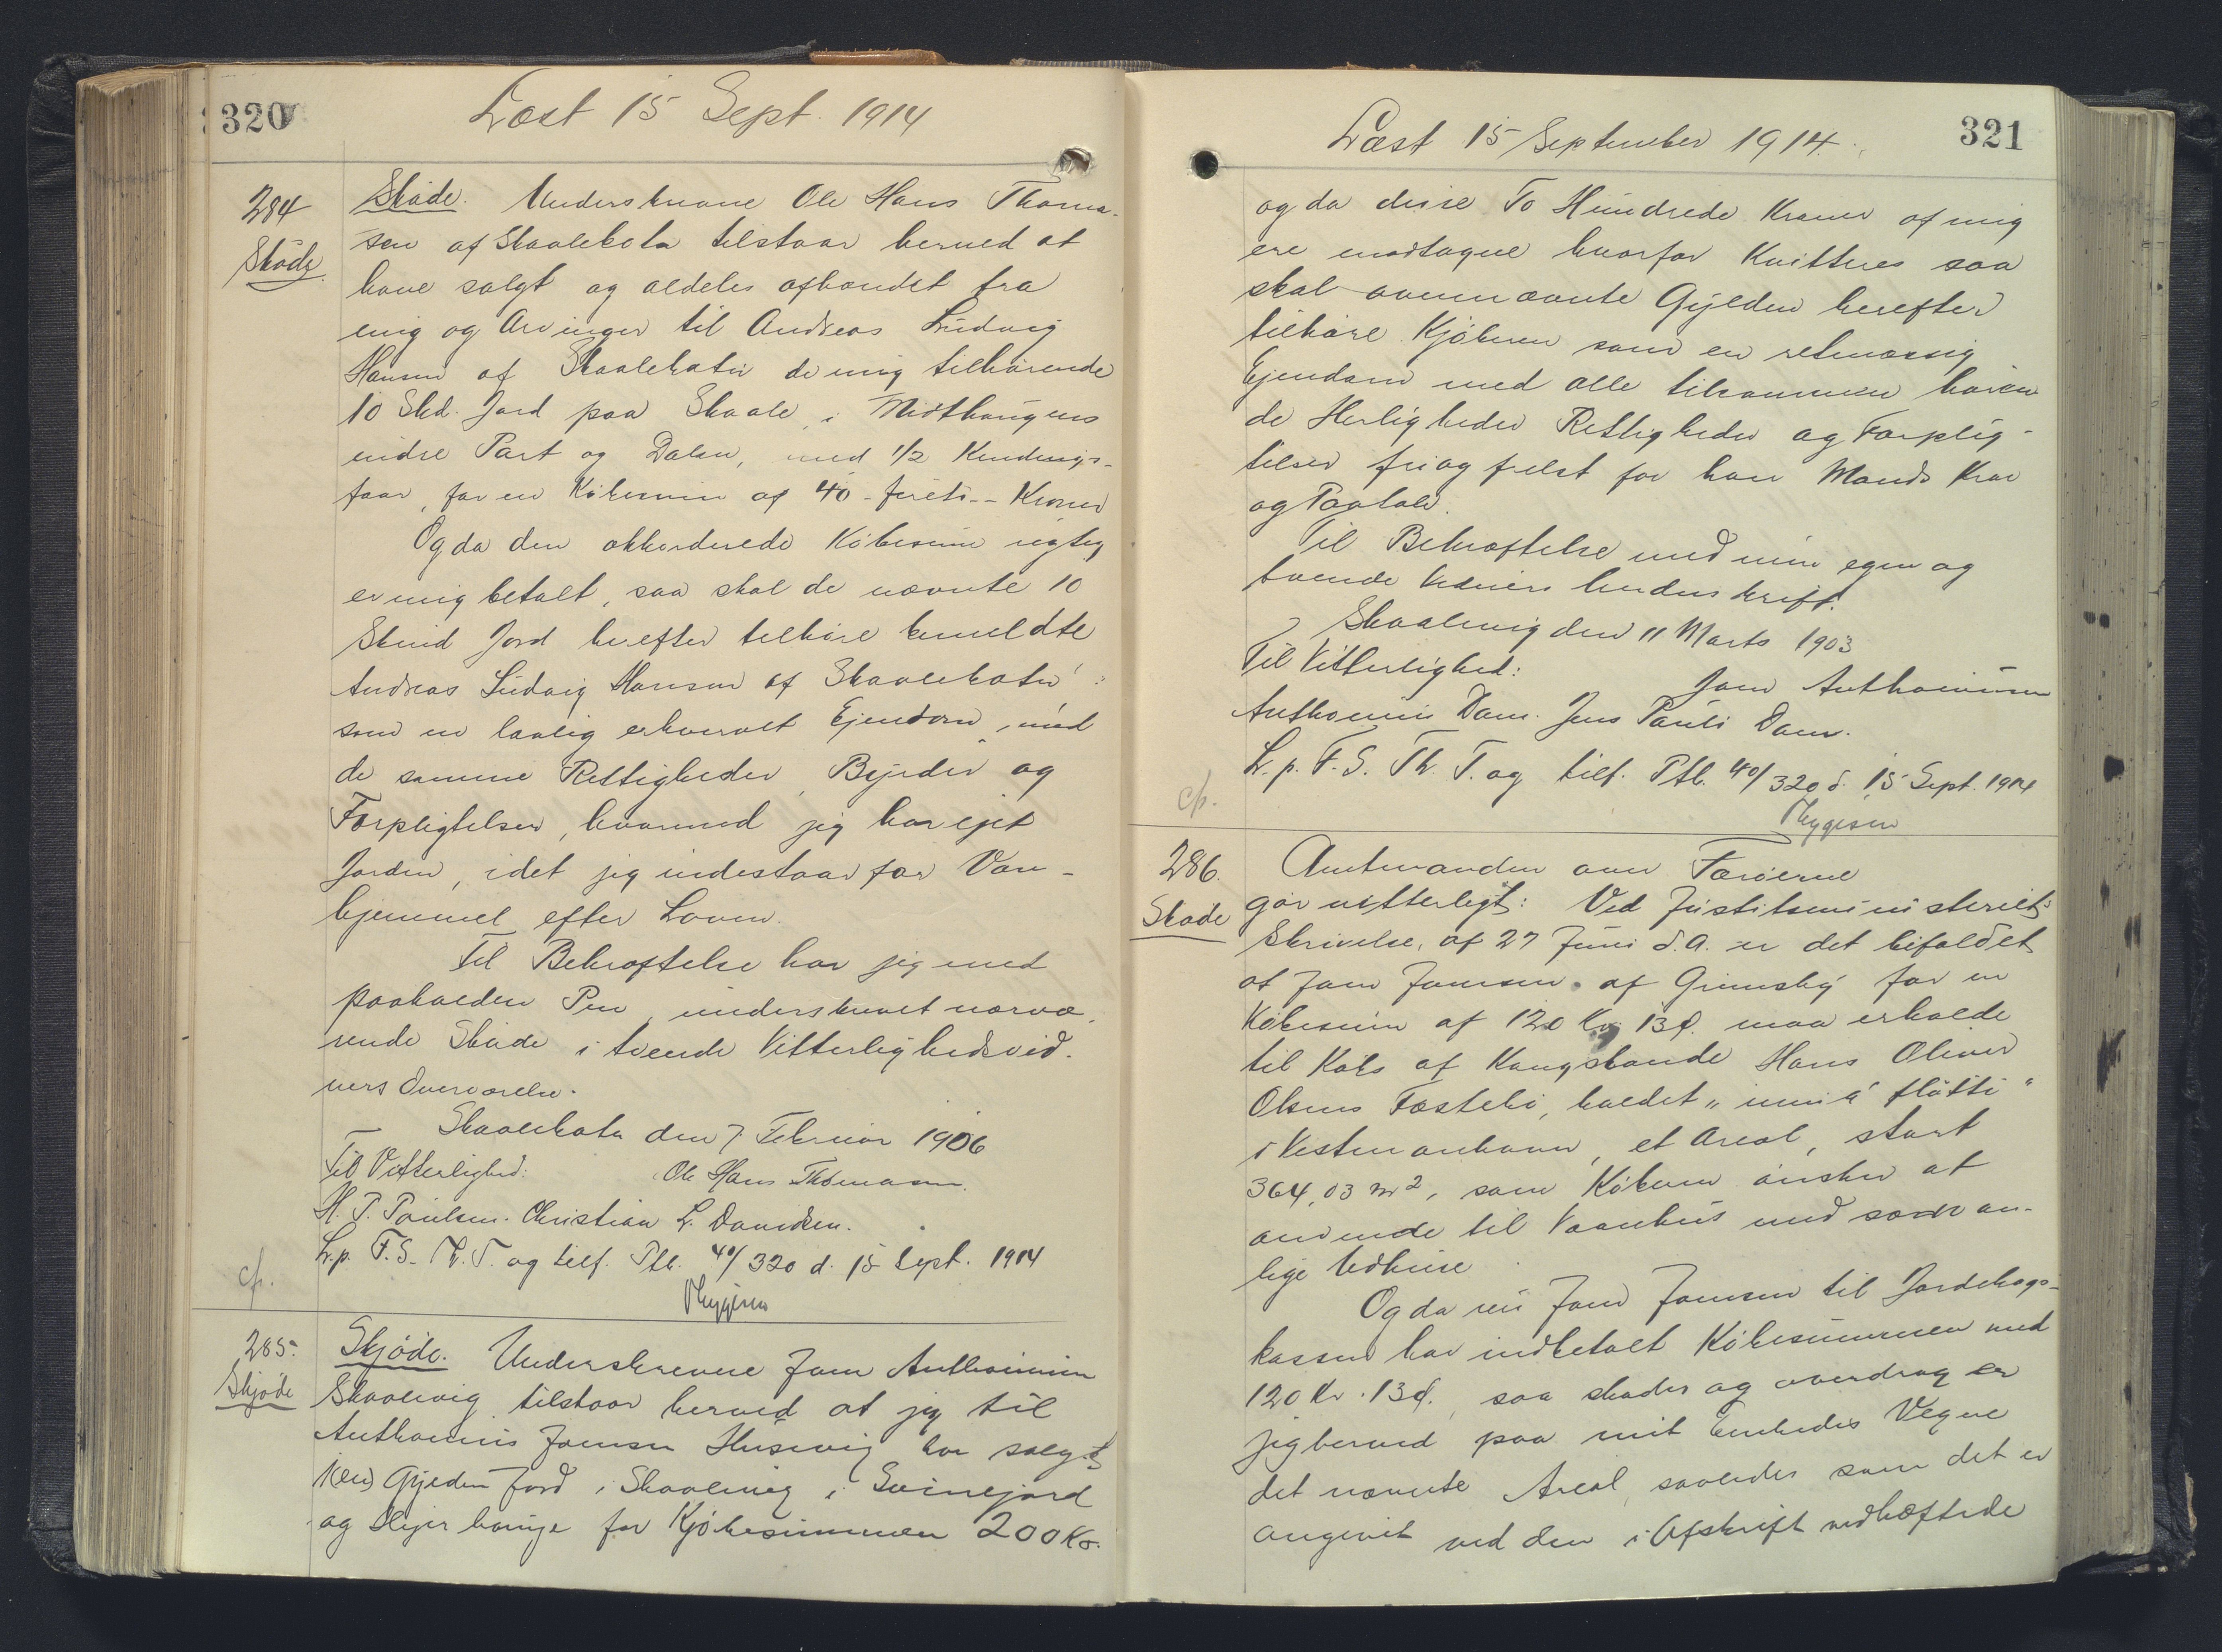 320
Læst 15 Sept. 1914
284
Skøde
Skøde. Underskrevne Ole Hans Thoma-
sen af Skaalebotn tilstaar herved at
have solgt og aldeles afhændet fra
mig og Arvinger til Andreas Ludvig
Hansen af Skaalebotn de mig tilhørende
10 Skd. Jord paa Skaale, i Midthaugens
indre Part og Dalen, med 1/2 Kendings-
faar, for en Købesum af 40 - fireti - Kroner
Og da den akkorderede Købesum rigtig
er mig betalt, saa skal de nævnte 10
Skind Jord herefter tilhøre bemeldte
Andreas Ludvig Hansen af Skaalebotn
som en lovlig erhvervet Ejendom, med
de samme Rettigheder, Byrder og
Forpligtelser, hvormed jeg har ejet
Jorden, idet jeg indestaar for Van-
hjemmel efter Loven.
Til Bekræftelse har jeg med
paaholden Pen, underskrevet nærvæ-
rende Skøde i tvende Vitterlighedsvid-
ners Overværelse.
Skaalebotn den 7 Februar 1906
Til Vitterlighed: Ole Hans Thomasen.
H. P. Poulsen. Christian L. Danielsen.
L. p. F. S. Th. T. og tilf. Ptb. 40/320 d. 15 Sept. 1914
cfr.
Thygesen
285.
Skjøde
Skjøde. Underskrevne Joen Anthonius
Skaalevig tilstaar herved at jeg til
Anthonius Joensen Husevig har solgt
1(en) Gylden Jord i Skaalevig i Gvinejord
og Hejer hauge for Kjøbesummen 200 Kr.
321
Læst 15 September 1914.
og da disse To Hundrede Kroner af mig
ere modtagne hvorfor Kvitteres saa
skal ovennævnte Gylden herefter
tilhøre Kjøberen som en retmæssig
Ejendom med alle tilsammen høren
de Herligheder Rettigheder og Forplig-
telser fri og frelst for hver Mands Krav
og Paatale.
Til Bekræftelse med min egen og
tvende Vidners Underskrift.
Skaalevig den 11 Marts 1903
Til Vitterlighed:
Joen Anthoniusen
Anthonius Dam. Jens Pauli Dam.
L. p. F. S. Th. T. og tilf. Ptb. 40/320 d. 15 Sept. 1914
cfr.
Thygesen
286.
Skøde
Amtmanden over Færøerne
gør vitterligt: Ved Justitsministeriets
Skrivelse, af 27 Juni d. A. er det bifaldet
at Joen Joensen af Grimsby for en
Købesum af 120 Kr 13 Ø. maa erholde
til Købs af Kongsbonde Hans Oliver
Olsens Fæstebø, kaldet "inni á fløtti"
i Vestmanhavn, et Areal, stort
364,03 m2, som Køberen ønsker at
anvende til Vaanhus med sædvan-
lige Udhuse
Og da nu Joen Joensen til Jordebogs-
kassen har indbetalt Købesummen med
120 Kr. 13 Ø. saa skøder og overdrager
jeg herved paa mit Embedes Vegne
det nævnte Areal, saaledes som det er
angivet ved den i Afskrift vedhæftede